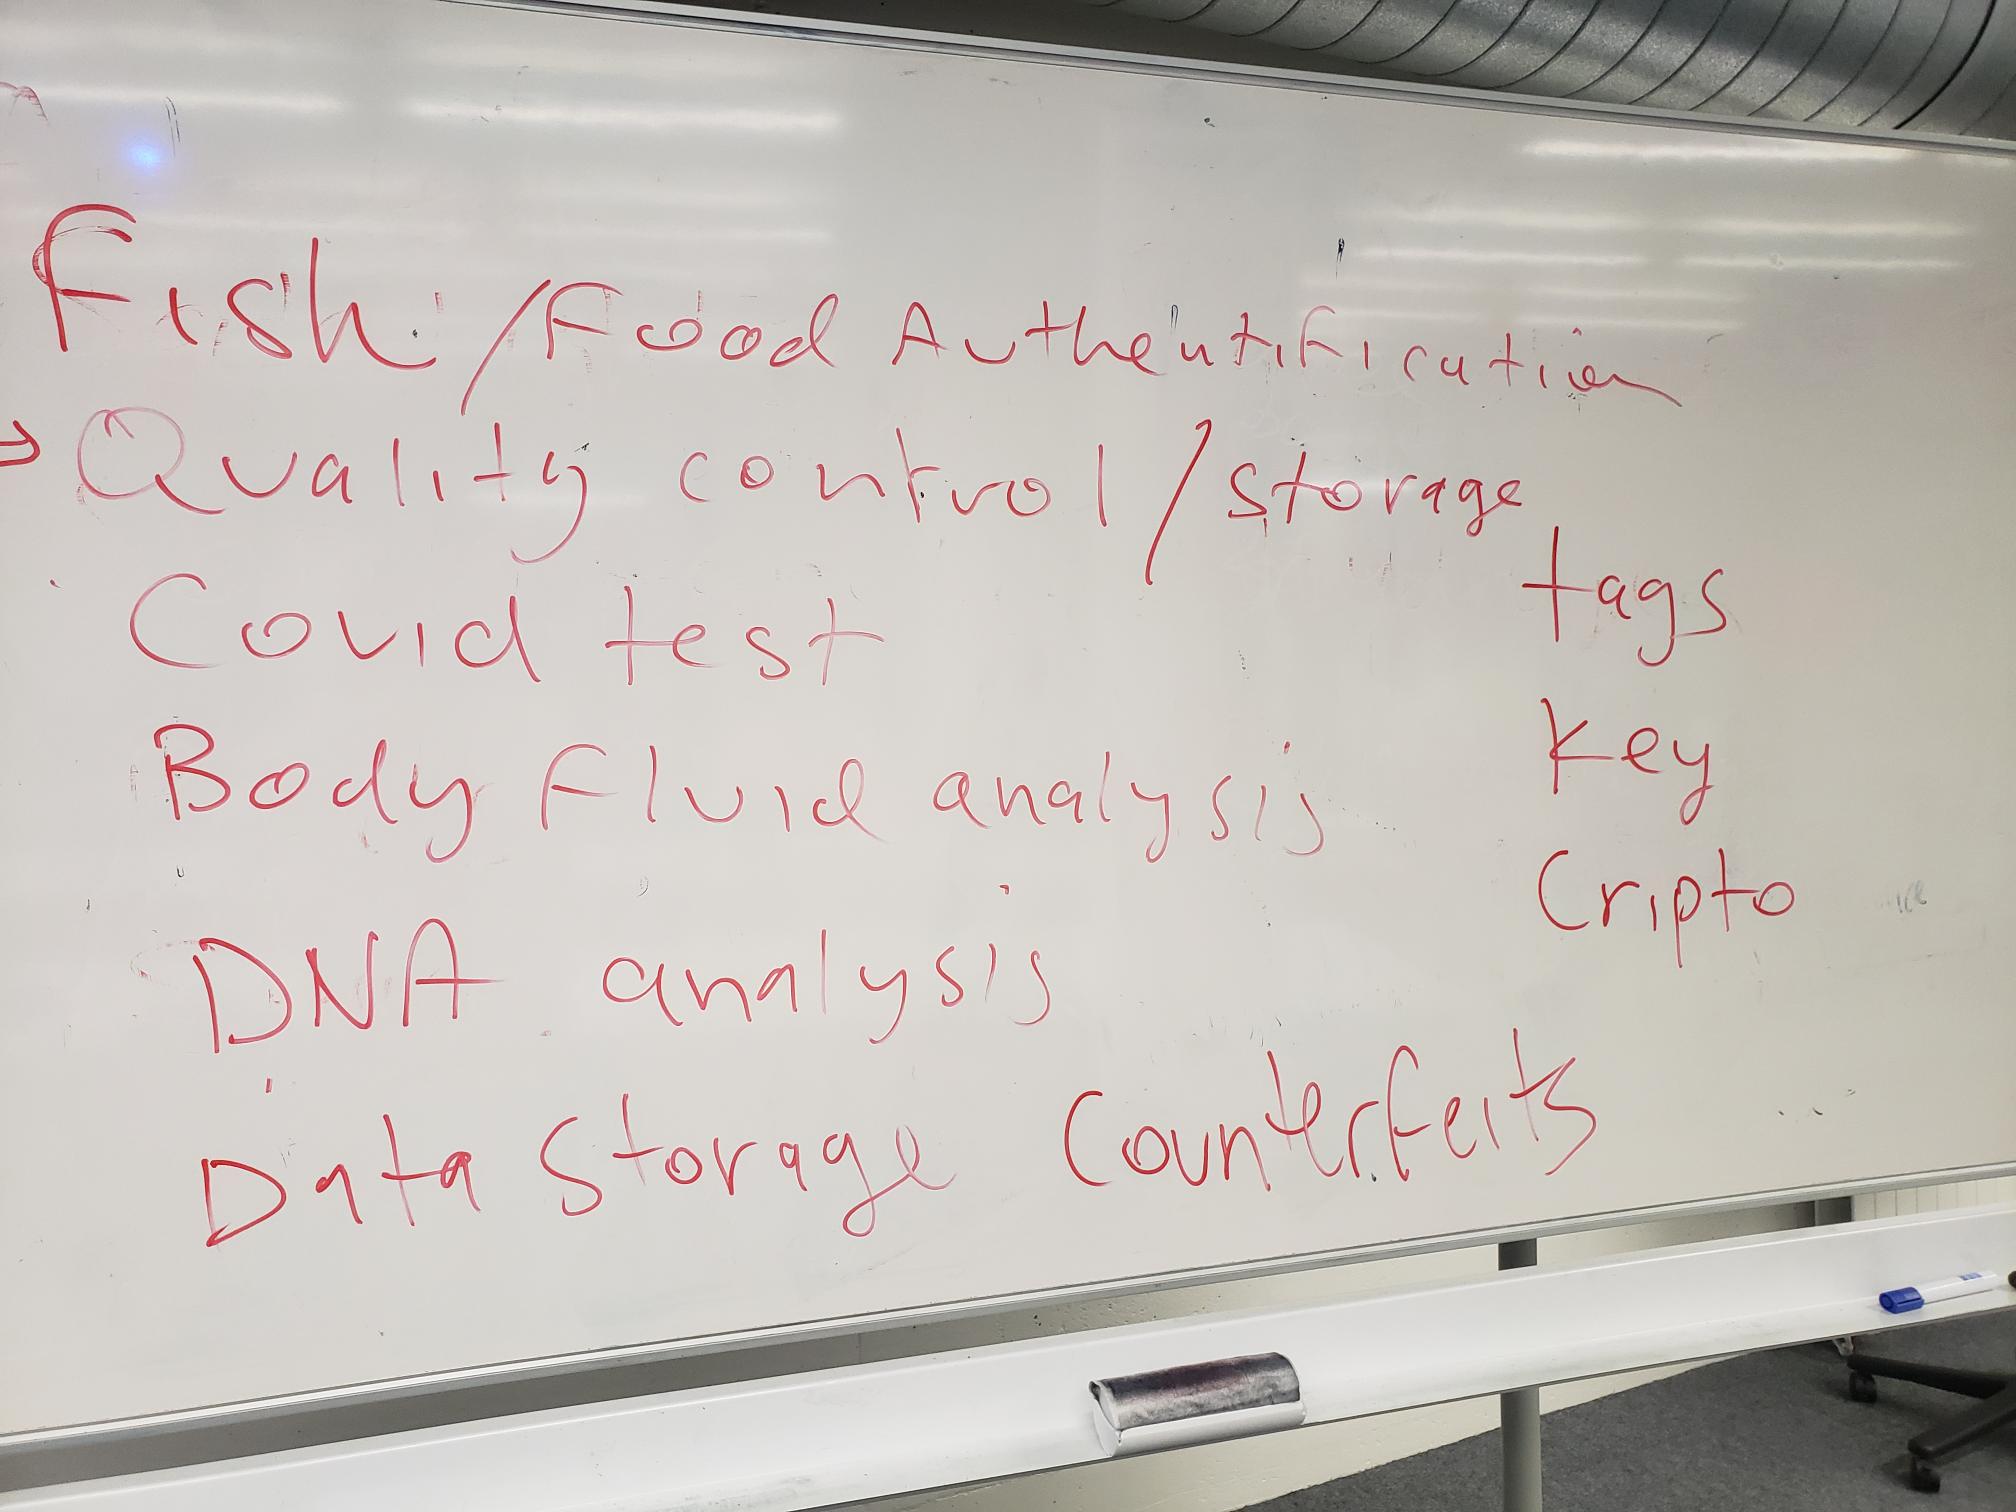 Fish / Food Authentification
→ Quality control / storage
Covid test
Body Fluid analysis
DNA analysis
Data storage
tags
Key
Cripto
Counterfeits